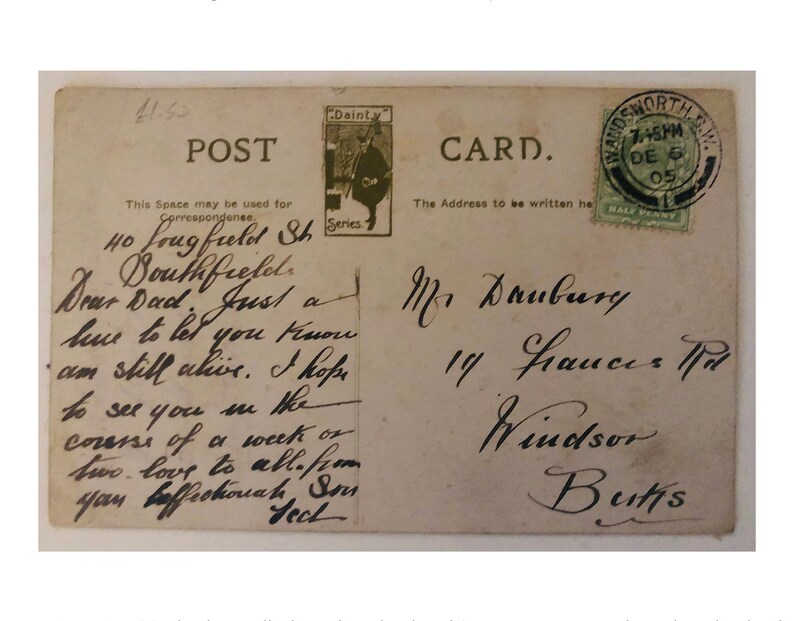 £1.50
POST
"Dainty"
Series.
CARD.
WANDSWORTH S.W.
7.15PM
DE 5
05
1
HALF PENNY
This Space may be used for
Correspondence.
The Address to be written he
40 Longfield St
Southfields
Dear Dad. Just a
line to let you know
am still alive. I hope
to see you in the
course of a week or
two. love to all. from
your affectionate Son
Ted
Mr Danbury
19 Francis Rd
Windsor
Berks